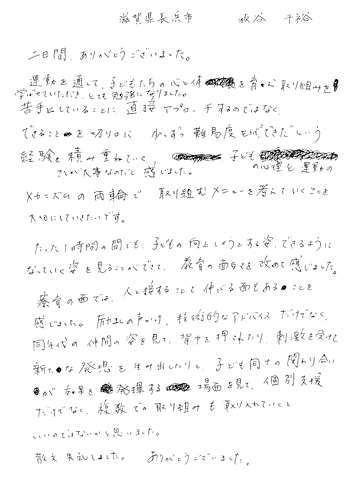 滋賀県長浜市 板谷 千裕
二日間、ありがとうございました。
運動を通して、子どもたちの心と体を育む取り組みを
学ばせていただき、とても勉強になりました。
苦手としていることに直接アプローチするのではなく、
できることを切り口に、少しずつ難易度を上げ“できた”という
経験を積み重ねていく
ことが大事なのだと感じました。
子どもの心理と運動の
メカニズムの両輪で、取り組むメニューを考えていくことを
大切にしていきたいです。
たった1時間の間にも、子どもの向上しようとする姿、できるように
なっていく姿を見ることができて、教育の面白さを改めて感じました。
療育の面では、人と接することで伸びる面もあることを
感じました。励ましの声かけ、技術的なアドバイスだけでなく、
同年代の仲間の姿を見て、背中を押されたり、刺激を受けて
新たな発想を生み出したりと、子ども同士の関わり合い
が効果を発揮する場面を見て、個別支援
だけでなく、複数での取り組みも取り入れていくと
いいのではないかと思いました。
散文失礼しました。 ありがとうございました。